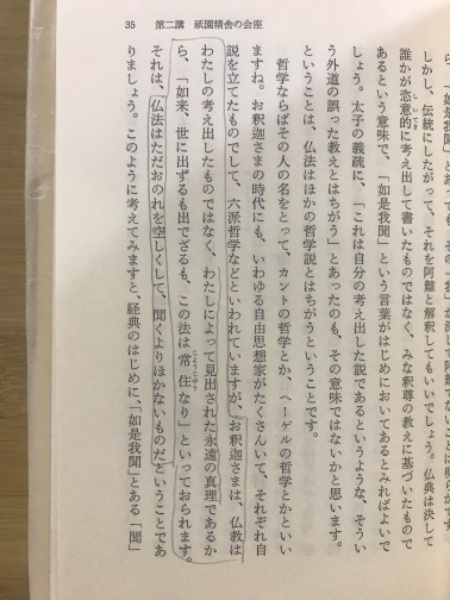 35　第二講　祇園精舎の会座
しかし、伝統にしたがって、それを阿難と解釈してもいいでしょう。仏典は決して
誰かが恣意的に考え出して書いたものではなく、みな釈尊の教えに基づいたもので
あるという意味で、「如是我聞」という言葉がはじめにおいてあるとみればよいで
しょう。太子の義疏に、「これは自分の考え出した説であるというような、そうい
う外道の誤った教えとはちがう」とあったのも、その意味ではないかと思います。
ということは、仏法はほかの哲学説とはちがうということです。
哲学ならばその人の名をとって、カントの哲学とか、ヘーゲルの哲学とかとい
ますね。お釈迦さまの時代にも、いわゆる自由思想家がたくさんいて、それぞれ自
説を立てたものでして、六派哲学などといわれていますが、お釈迦さまは、仏教は
わたしの考え出したものではなく、わたしによって見出された永遠の真理であるか
ら、「如来、世に出ずるも出でざるも、この法は常住なり」といっておられます。
それは、仏法はただおのれを空しくして、聞くよりほかないものだということであ
りましょう。このように考えてみますと、経典のはじめに、「如是我聞」とある「聞」